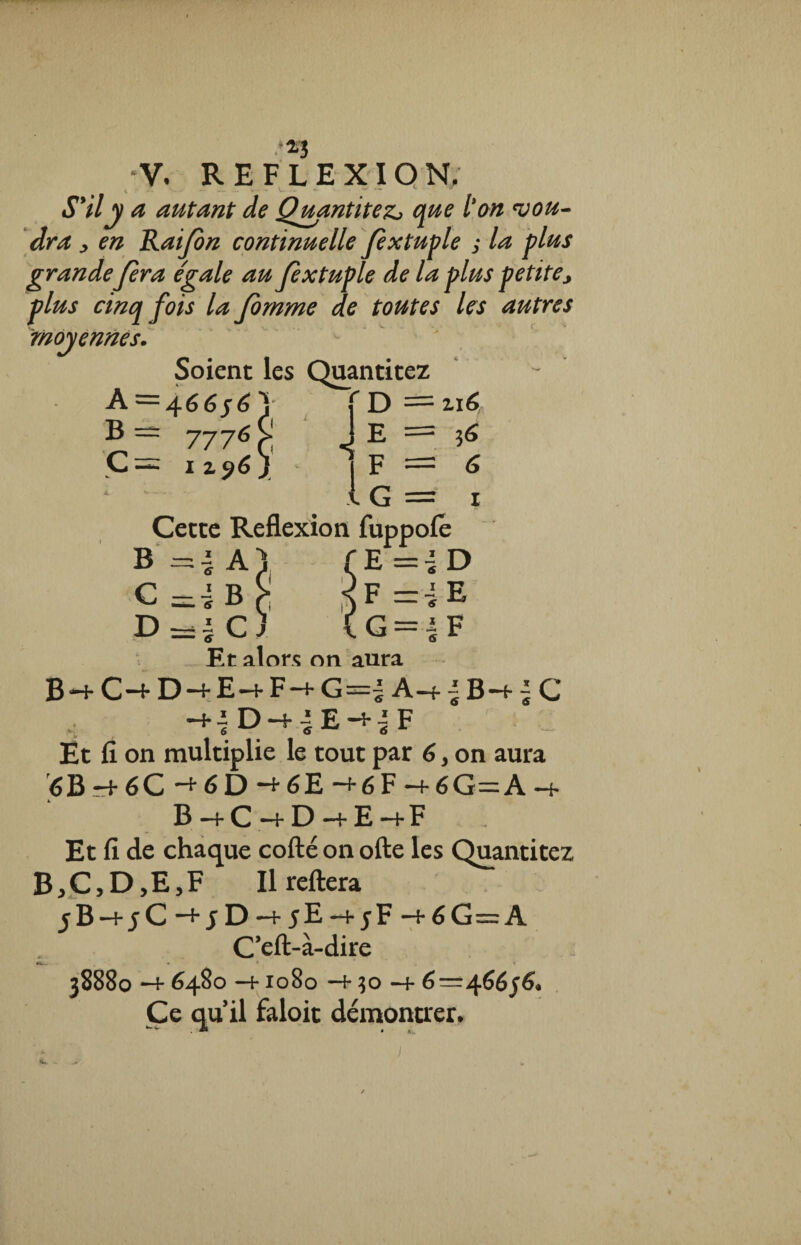 23
V. REFLEXION.
S'il y a autant de Quantitez que l'on vou-
dra, en Raiſon continuelle ſextuple ; la plus
grande ſera égale au ſextuple de la plus petite,
plus cinq fois la ſomme de toutes les autres
moyennes.
Soient les Quantitez
A = 46656 } { D = 216
B = 7776 } { E = 36
C = 1296 } { F = 6
{ G = 1
Cette Reflexion ſuppoſe
B = 1/6 A } { E = 1/6 D
C = 1/6 B } { F = 1/6 E
D = 1/6 C } { G = 1/6 F
Et alors on aura
B + C + D + E + F + G = 1/6 A + 1/6 B + 1/6 C
+ 1/6 D + 1/6 E + 1/6 F
Et ſi on multiplie le tout par 6, on aura
6B + 6C + 6D + 6E + 6F + 6G = A +
B + C + D + E + F
Et ſi de chaque coſté on oſte les Quantitez
B, C, D, E, F Il reſtera
5B + 5C + 5D + 5E + 5F + 6G = A
C'eſt-à-dire
38880 + 6480 + 1080 + 30 + 6 = 46656.
Ce qu'il faloit démontrer.